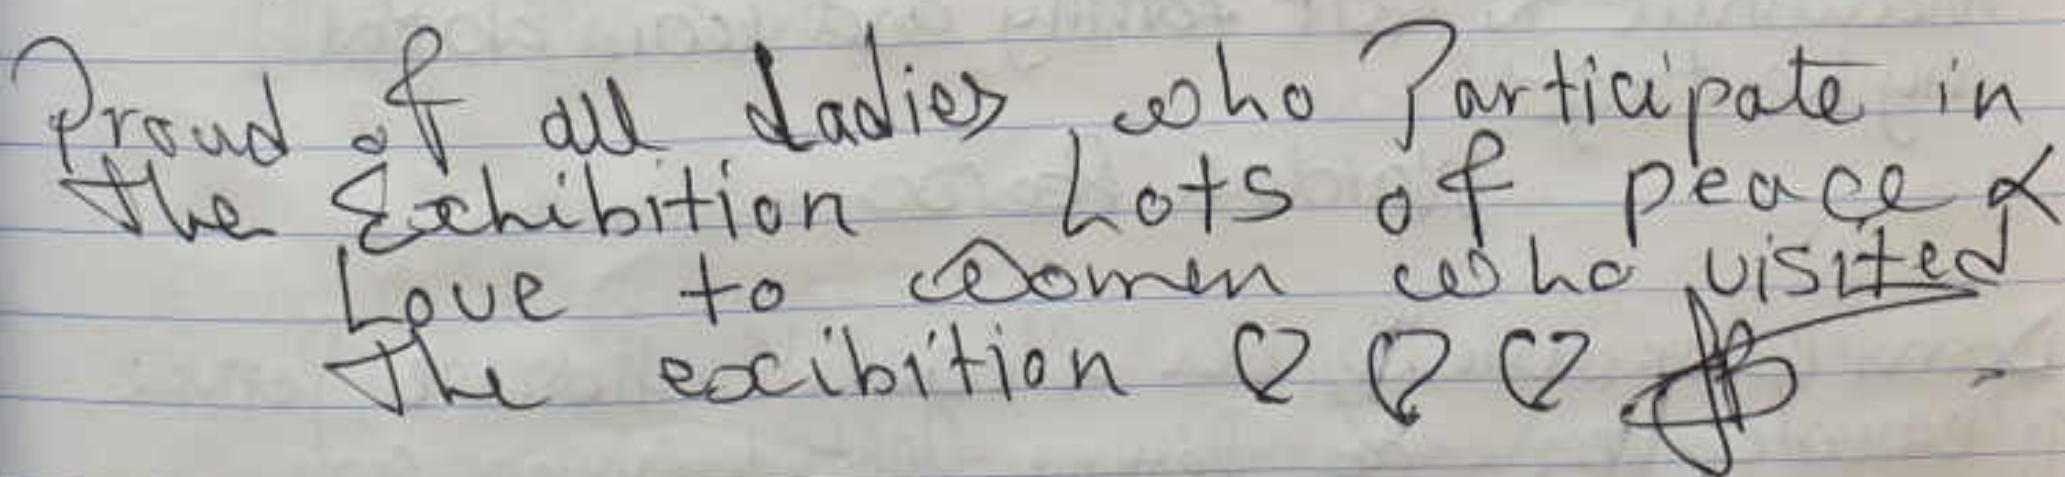 Proud of all Ladies who Participate in
the Exhibition Lots of peace &
Love to Women who visited
The exibition ♡ ♡ ♡